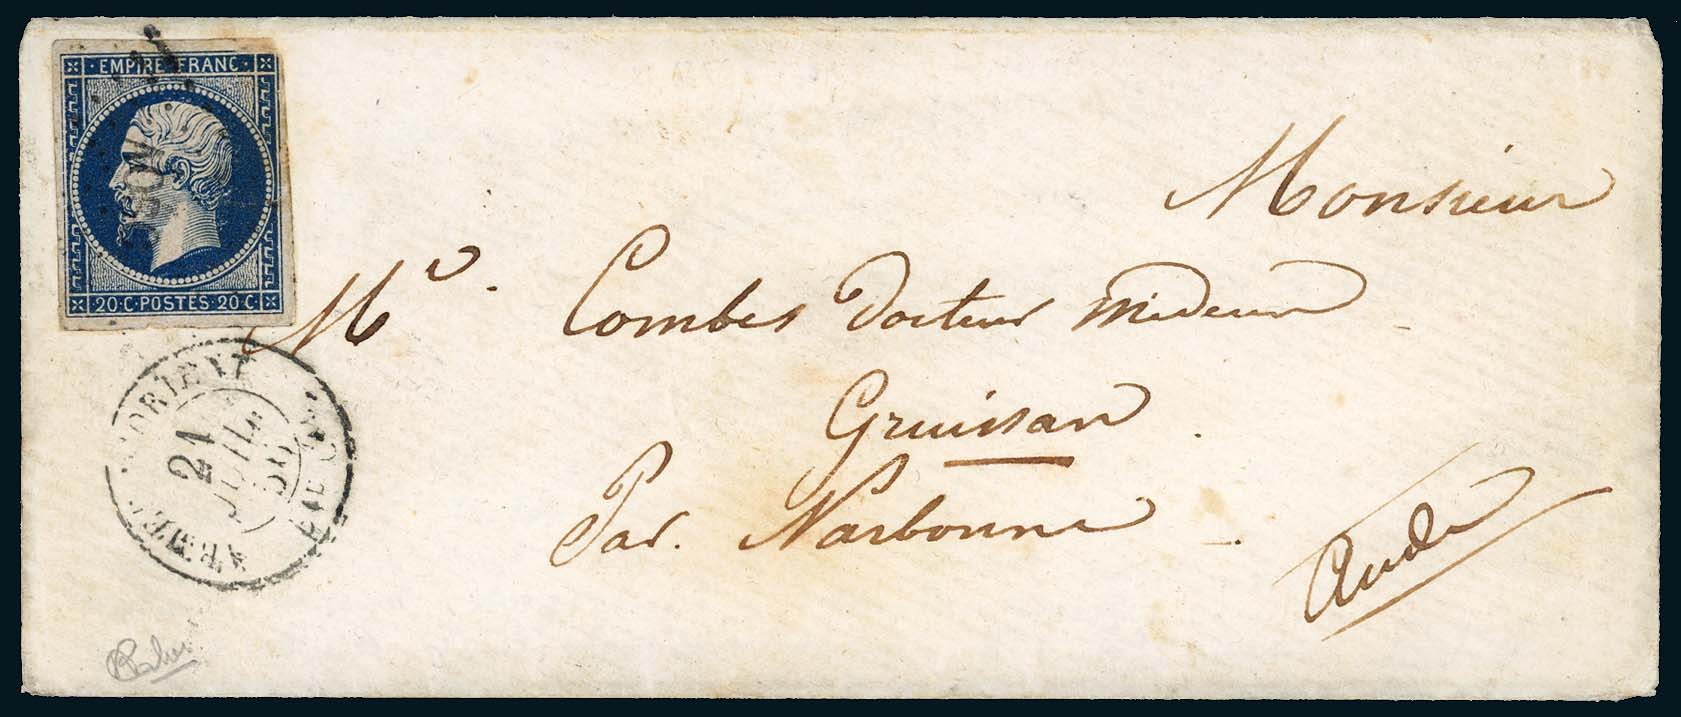 · EMPIRE · FRANC ·
20·C·POSTES·20·C
ORIENT
21
JUIL
Monsieur
Mr. Combes Docteur Médecin
Gruissan
Par. Narbonne
Aude